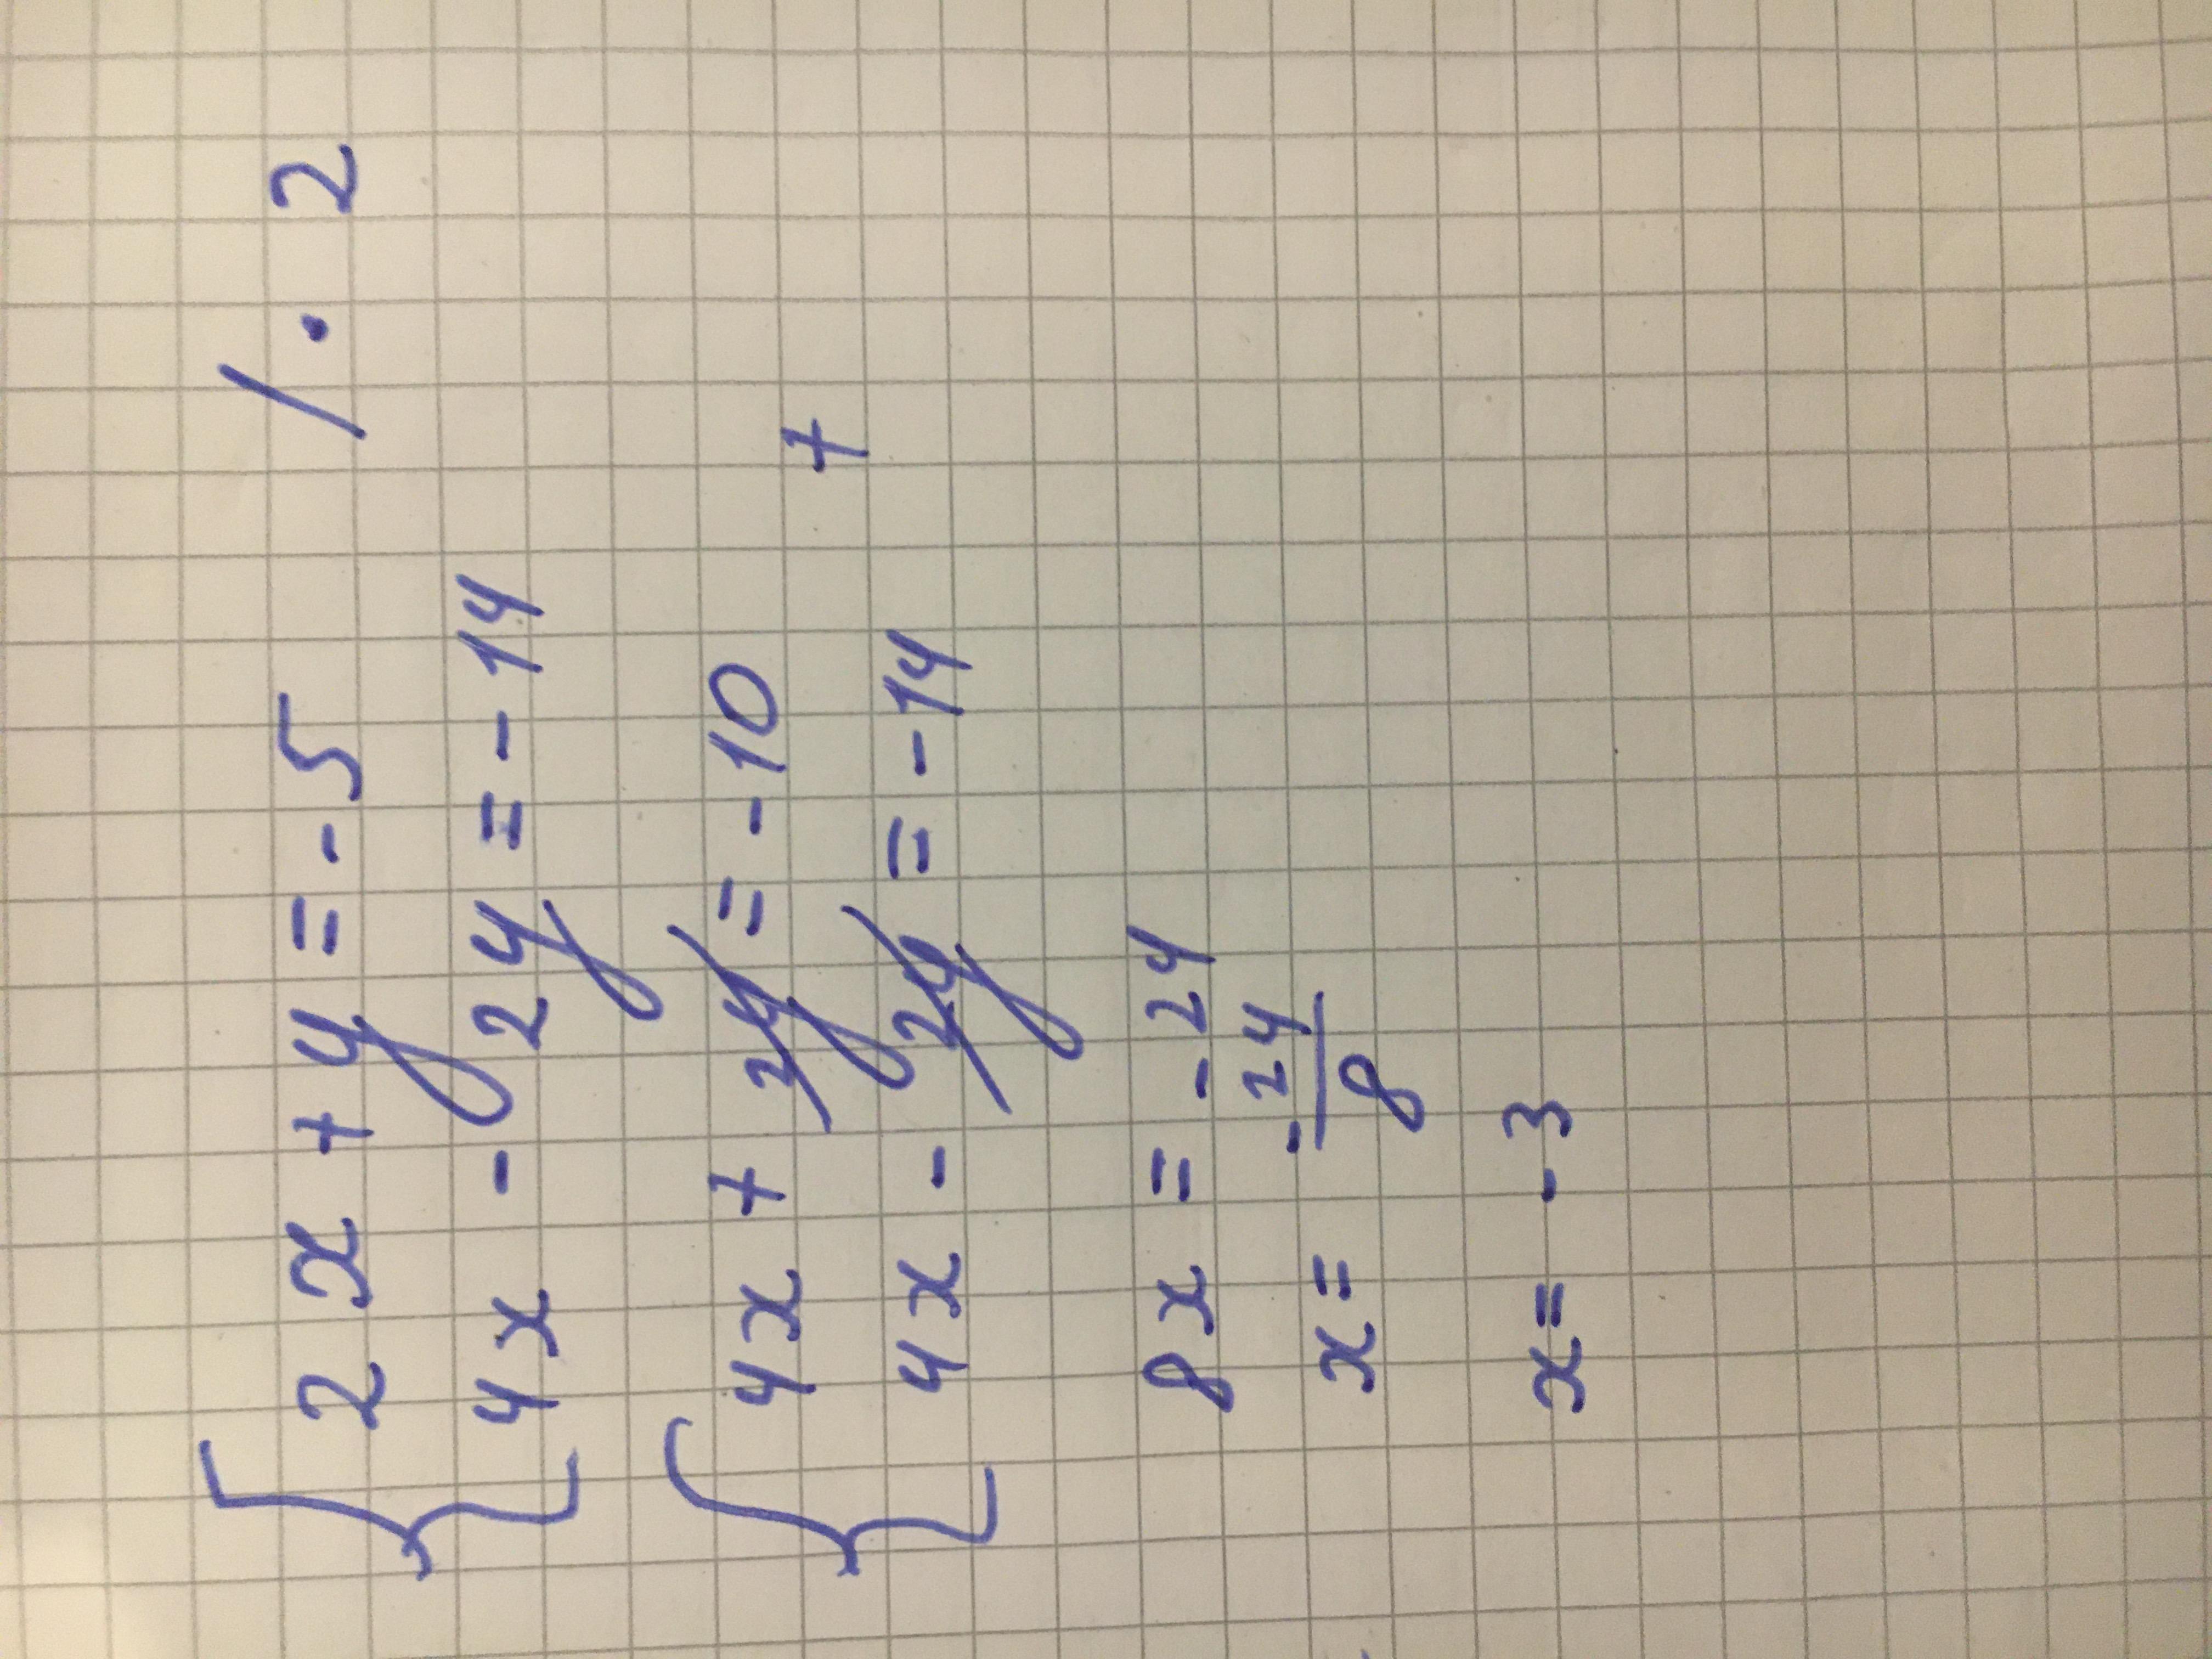 2x + y = -5 / · 2
4x - 2y = -14
4x + 2y = -10
+
4x - 2y = -14
8x = -24
x = -24/8
x = -3